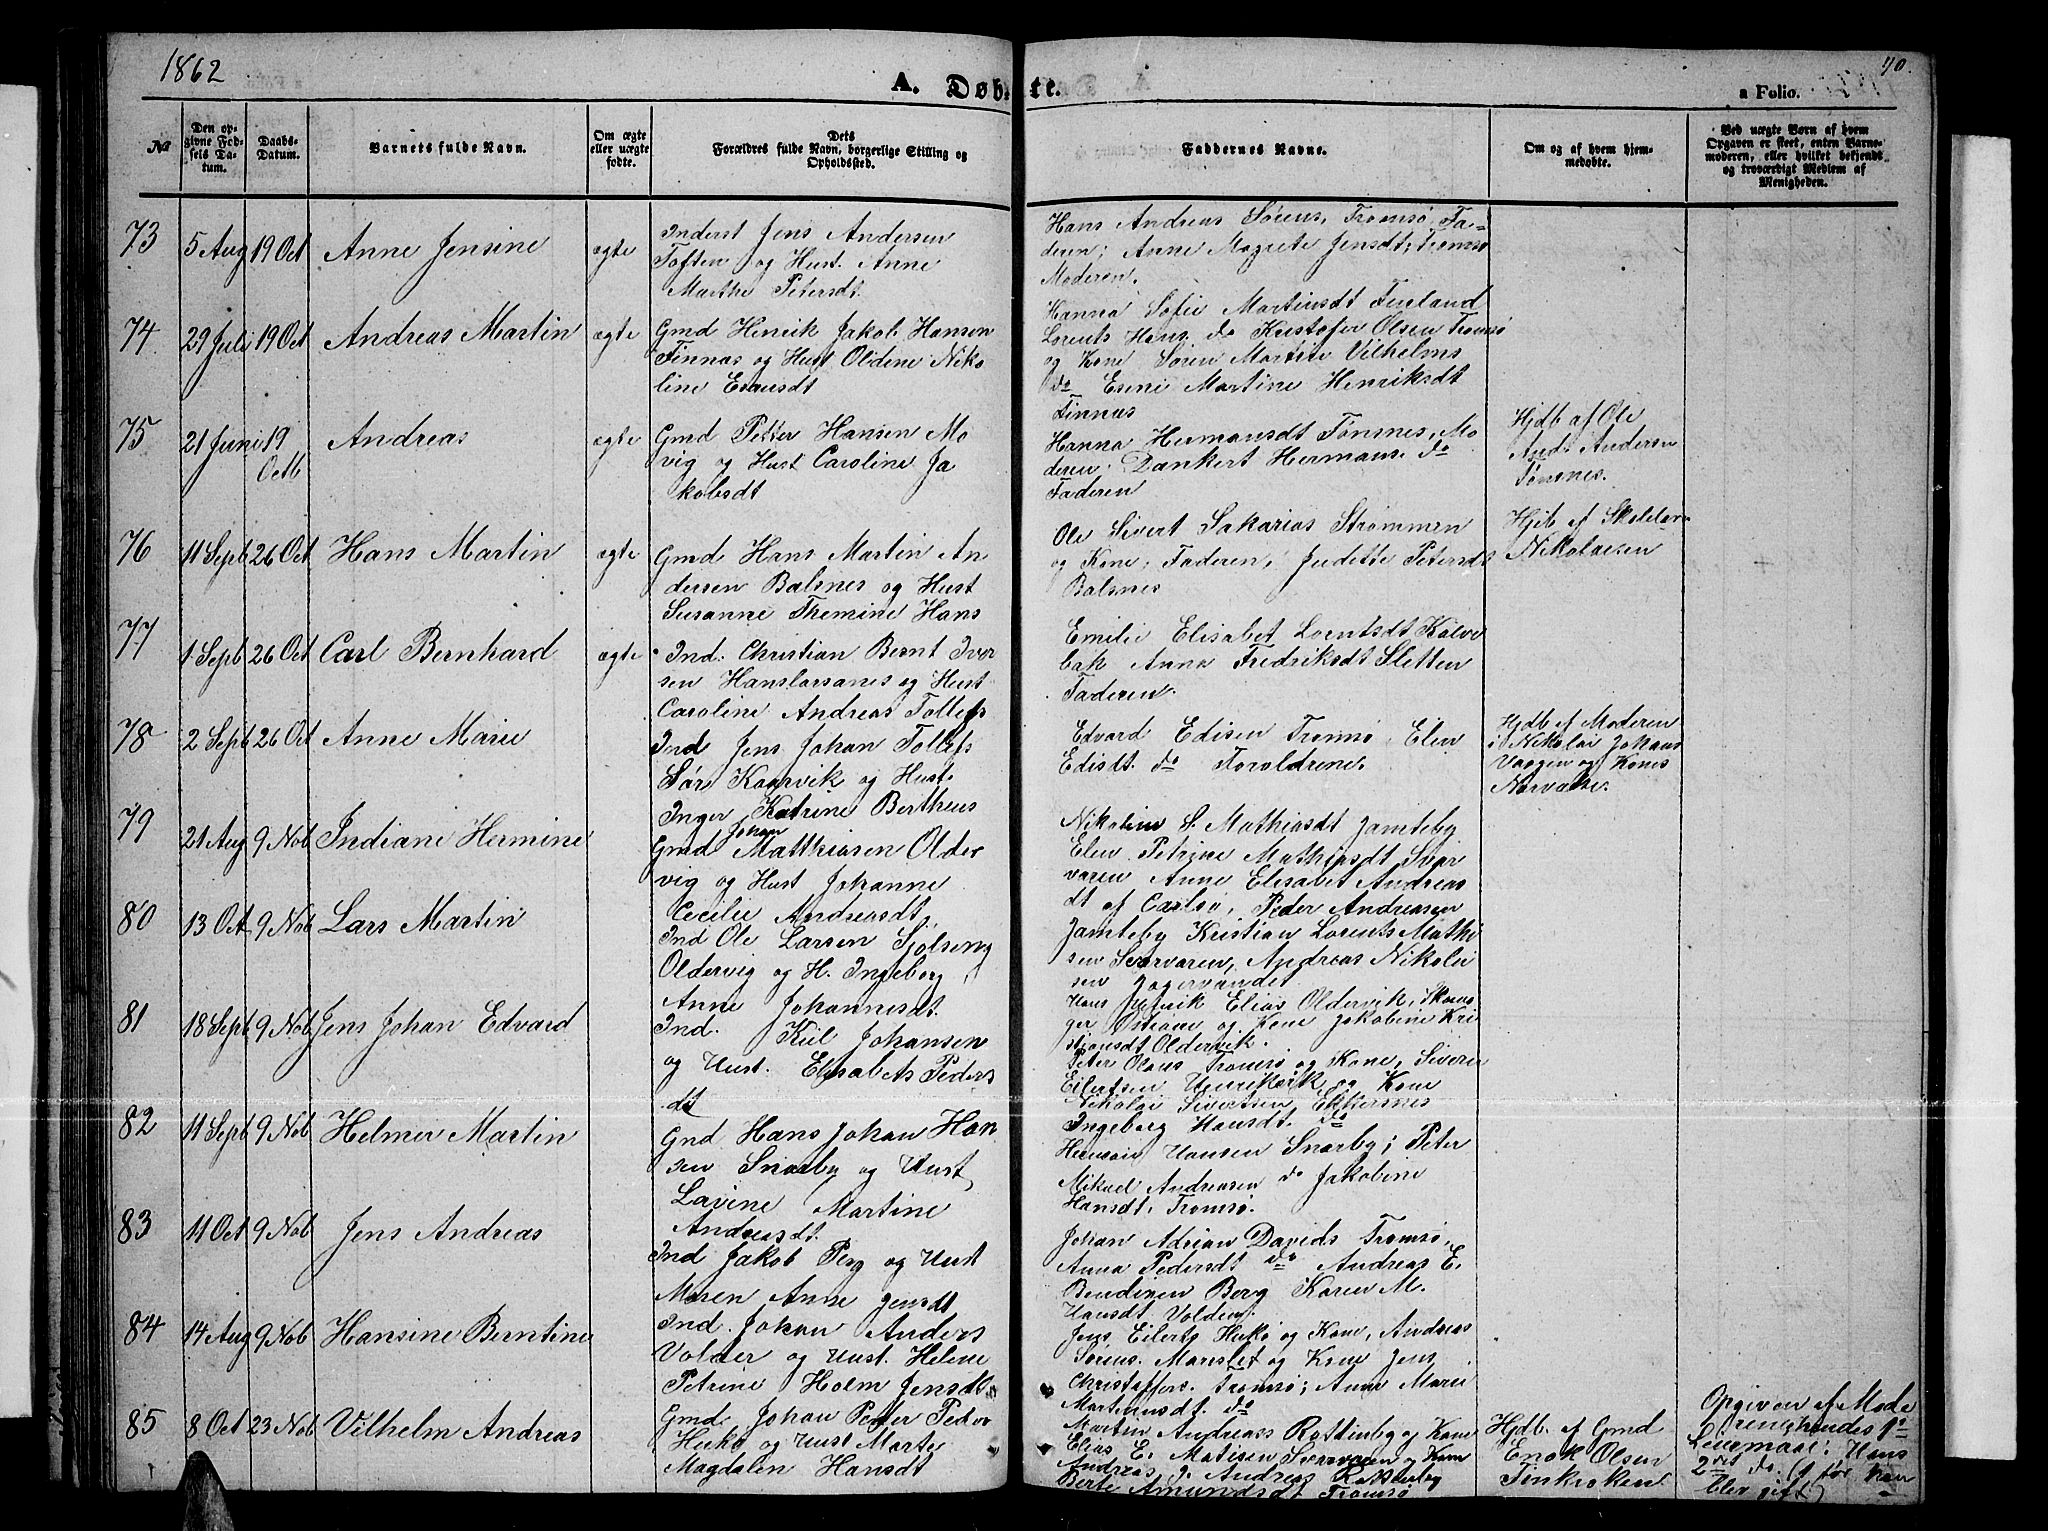 1862
A. Døbte.
70.
a Folio.
No
Den op-
givne Fød-
sels Da-
tum.
Daabs-
Datum.
Barnets fulde Navn.
Om ægte
eller uægte
fødte.
Dets
Forældres fulde Navn, borgerlige Stilling og
Opholdssted.
Faddernes Navne.
Om og af hvem hjem-
medøbte.
Ved uægte Børn af hvem
Opgaven er skeet, enten Barne-
moderen, eller hvilket bekjendt
og troværdigt Medlem af
Menigheden.
73
5 Aug
19 Oct
Anne Jensine
ægte
Inderst Jens Andersen
Toften og Hust. Anne
Marthe Petersdt.
Hans Andreas Sørens, Tromsø, Fa-
deren; Anne Magrete Jensdt, Tromsø
Moderen.
74
29 Juli
19 Oct
Andreas Martin
ægte
Gmd Henrik Jakob Hansen
Finnæs og Hust Oldine Niko
line Evensdt
Hanna Sofie Martinsdt Finland
Lorents Hans. do Kristofer Olsen Tromsø
og Kone Søren Martin Vilhelms
do Martine Henriksdt
Finnæs
75
21 Juni
19
Octb
Andreas
ægte
Gmd Petter Hansen Mo
vig og Hust Caroline Ja
kobsdt
Hanna Hermansdt Tønsnes, Mo
deren, Dankert Hermans. do
Faderen
Hjdb af Ole
And. Andersen
Tønsnes.
76
11 Sept
26 Oct
Hans Martin
ægte
Gmd Hans Martin An
dersen Balsnes og Hust
Susanne Themine Hans
Ole Sivert Sakarias Strømmen
og Kone, Faderen, Judette Petersdt
Balsnes
Hjdb af Skolelær
Nikolaisen
77
1 Sept
26 Oct
Carl Bernhard
ægte
Ind. Christian Bernt Iver
sen Hanslarsanes og Hust
Caroline Andreas Tollefs
Emilie Elisabet Lorntsdt Kalve
bak Anna Fredriksdt Sletten
Faderen.
78
2 Sept
26 Oct
Anne Marie
Ind Jens Johan Tollefs
Sør Kaarvik og Hust.
Inger Katrine Bertheus
Edvard Edisen Tromsø, Elen
Edisdt. do Foroldrene.
Hjdb af Moderen
i Nikolai Johans
Vaagen og Kones
Nærvælse.
79
21 Aug
9 Nob
Indiane Hermine
Johan
Gmd Matthiasen Older
vig og Hust Johanne
Cecilie Andreasdt,
Nikoline S. Mathiasdt Jamteby
Elen Petrine Mathiasdt Svar
varen Anne Elisabet Andreas
dt af Carlsø, Peder Andreasen
Jamteby Kristian Lorents Mathi
sen Svarvaren, Andreas Nikolai
sen Jægervandet
80
13 Oct
9 Nob
Lars Martin
Ind Ole Larsen Sjølseng
Oldervig og H. Ingeborg
Anne Johannesdt.
Hans Henrik Elias Oldervik, Skous
ger og Kone Jakobine Kri
stiansdt Oldervik.
81
18 Sept
9 Nob
Jens Johan Edvard
Ind. Kiil Johansen
og Hust. Elisabets Peders
dt
Peter Olaus Tromsø og Kone, Siveren
Eilertsen Henrikvik og Kone
Nikolai Sivertsen Ekkersnes
Ingeborg Hansdt. do
82
11 Sept
9 Nob
Helmer Martin
Gmd Hans Johan Han
sen Snarby og Hust
Lavine Martine
Andreasdt.
Hermain Hansen Snarby; Peter
Mikael Andreasen do Jakobine
Hansdt, Tromsø.
83
11 Oct
9 Nob
Jens Andreas
Ind Jakob Berg og Hust
Maren Anne Jensdt
Johan Adrian Davids Tromsø,
Anna Pedersdt do Andreas E.
Bendixen Berg Karen M.
Hansdt. Volden.
84
14 Aug
9 Nob
Hansine Berntine
Ind. Johan Anders
Volder og Hust. Helene
Petrine Holm Jensdt
Jens Eilerts Hukø og Kone, Andreas
Sørens. og Kone Jens
Christoffers. Tromsø; Anne Marie
Martinusdt. do
85
8 Oct
23 Nob
Vilhelm Andreas
Gmd. Johan Peder Peder
og Hust Marte
Magdalen Hansdt
Morten Andreas Rottenby og Kone
Elias E. Matisen Svarvaren og Kone
Andreas J. Andreas Rottenby
Berte Amundsdt Tromsø
Hjdb. af Gmd
Enok Olsen
Finkroken
Opgiven af Mode
ren;
2det do. (1 før han
blev gift)